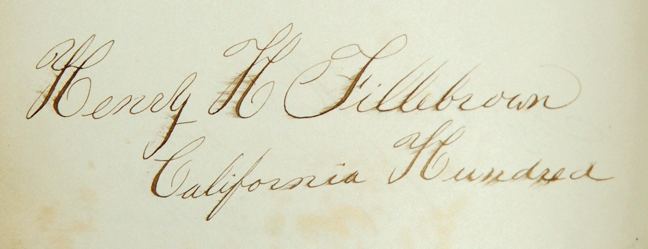 Henry H Fillebrown
California Hundred